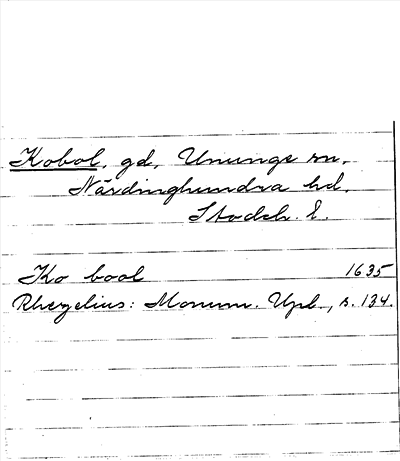 Kobol, gd, Ununge sn,
Närdinghundra hd,
Stockh. l.
Ko bool 1635
Rhezelius: Monum. Upl., s. 134.